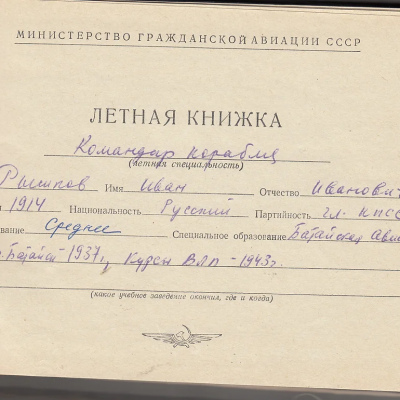 МИНИСТЕРСТВО ГРАЖДАНСКОЙ АВИАЦИИ СССР
ЛЕТНАЯ КНИЖКА
Командир корабля
(летная специальность)
Рышков Имя Иван Отчество Иванович
1914 Национальность Русский Партийность чл. КПСС
вание Среднее Специальное образование Батайская Авиа
г. Батайск - 1937г, Курсы ВЛП - 1943г
(какое учебное заведение окончил, где и когда)